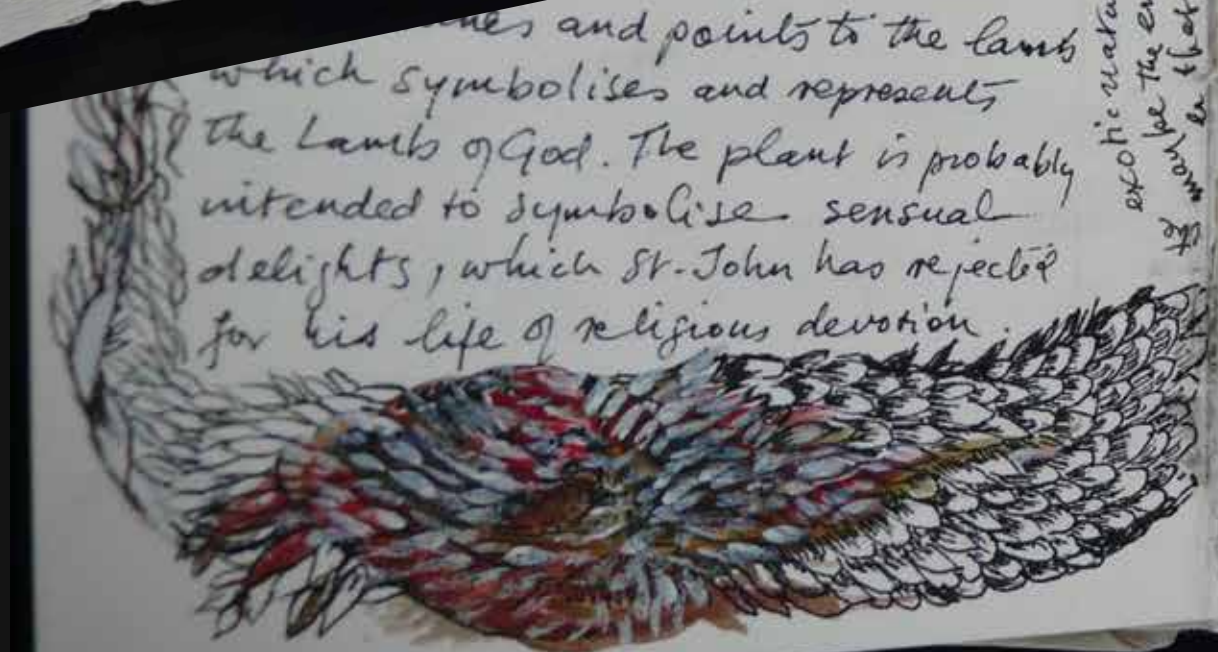 and points to the lamb
which symbolises and represents
the Lamb of God. The plant is probably
intended to symbolise sensual
delights, which St. John has rejected
for his life of religious devotion.
exotic
may be the